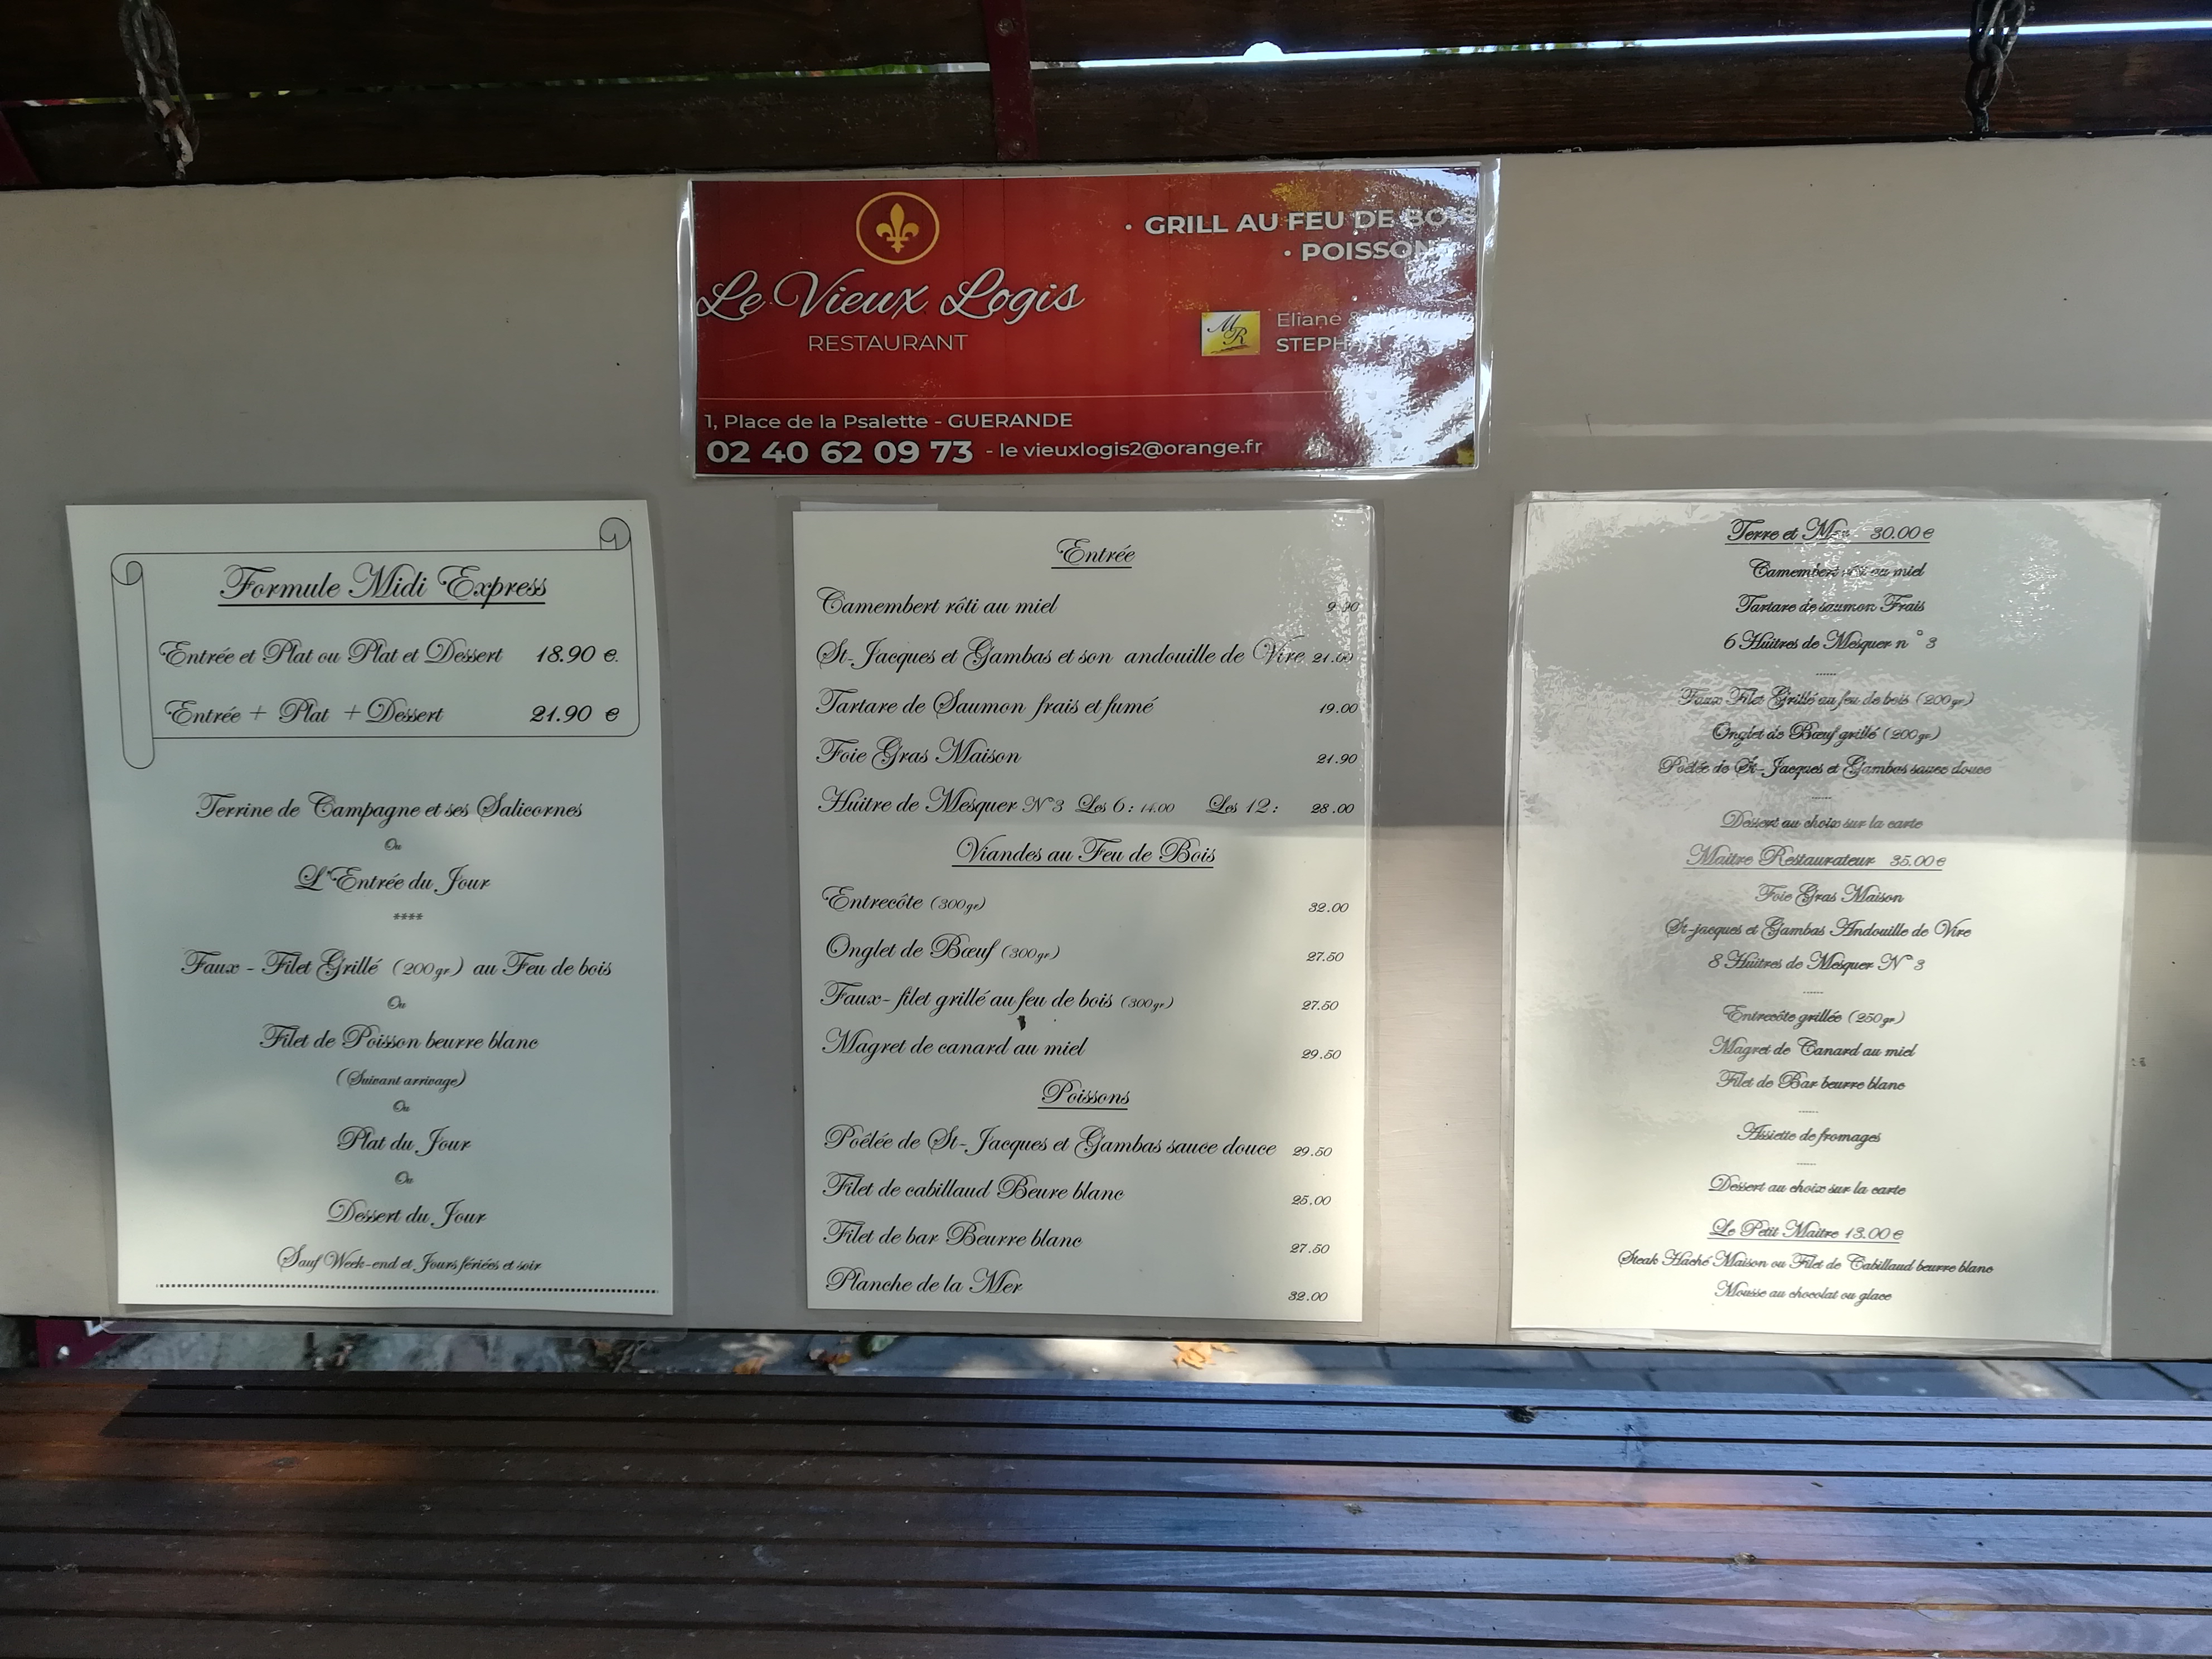 Le Vieux Logis
RESTAURANT
· GRILL AU FEU DE BOIS
· POISSON
MR
Eliane
1, Place de la Psalette - GUERANDE
02 40 62 09 73 - le vieuxlogis2@orange.fr
Formule Midi Express
Entrée et Plat ou Plat et Dessert 18.90 €.
Entrée + Plat + Dessert 21.90 €
Terrine de Campagne et ses Salicornes
Ou
L'Entrée du Jour
****
Faux - Filet Grillé (200gr) au Feu de bois
Ou
Filet de Poisson beurre blanc
(Suivant arrivage)
Ou
Plat du Jour
Ou
Dessert du Jour
Sauf Week-end et Jours fériées et soir
Entrée
Camembert rôti au miel
St-Jacques et Gambas et son andouille de Vire 21.00
Tartare de Saumon frais et fumé 19.00
Foie Gras Maison 21.90
Huitre de Mesquer N°3 Les 6 : 14.00 Les 12 : 28.00
Viandes au Feu de Bois
Entrecôte (300gr) 32.00
Onglet de Bœuf (300gr) 27.50
Faux- filet grillé au feu de bois (300gr) 27.50
Magret de canard au miel 29.50
Poissons
Poêlée de St-Jacques et Gambas sauce douce 29.50
Filet de cabillaud Beure blanc 25.00
Filet de bar Beurre blanc 27.50
Planche de la Mer 32.00
Terre et Mer 30.00 €
Camembert au miel
Tartare de saumon Frais
6 Huitres de Mesquer n°3
------
Faux Filet Grillé au feu de bois (200gr)
Onglet de Bœuf grillé (200gr)
Poêlée de St-Jacques et Gambas sauce douce
------
Dessert au choix sur la carte
Maitre Restaurateur 35.00 €
Foie Gras Maison
St-jacques et Gambas Andouille de Vire
8 Huitres de Mesquer N°3
------
Entrecôte grillée (250gr)
Magret de Canard au miel
Filet de Bar beurre blanc
------
Assiette de fromages
------
Dessert au choix sur la carte
Le Petit Maitre 13.00 €
Steak Haché Maison ou Filet de Cabillaud beurre blanc
Mousse au chocolat ou glace